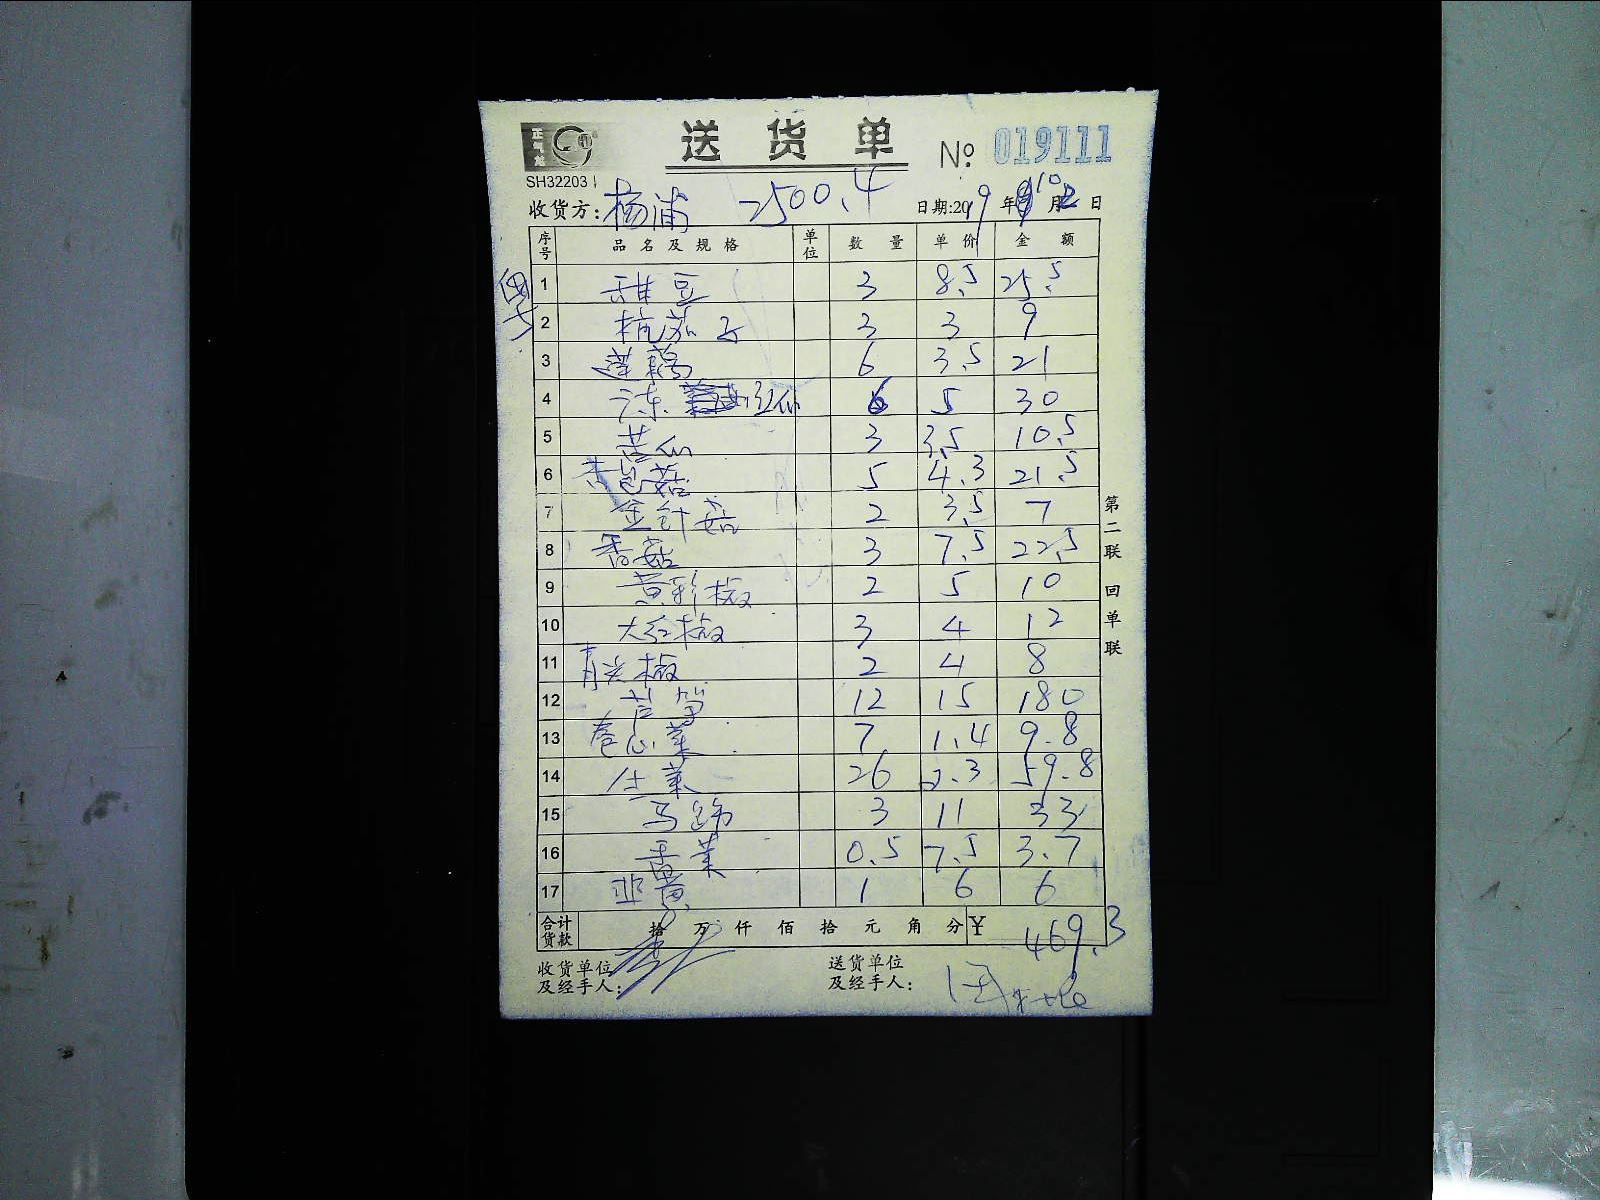 送货单 № 019111
SH32203
收货方: 杨浦 2500.4 日期:2019年10月2日
序号 品名及规格 单位 数量 单价 金额
1 甜豆 3 8.5 25.5
2 杭茄子 3 3 9
3 莲藕 6 3.5 21
4 6 5 30
5 苦瓜 3 3.5 10.5
6 杏鲍菇 5 4.3 21.5
7 金针菇 2 3.5 7
8 香菇 3 7.5 22.5
9 黄彩椒 2 5 10
10 大红椒 3 4 12
11 青尖椒 2 4 8
12 12 15 180
13 卷心菜 7 1.4 9.8
14 生菜 26 2.3 59.8
15 马蹄 3 11 33
16 香菜 0.5 7.5 3.7
17 韭黄 1 6 6
合计货款 拾 万 仟 佰 拾 元 角 分 ¥ 469.3
收货单位及经手人: 送货单位及经手人:
第二联 回单联